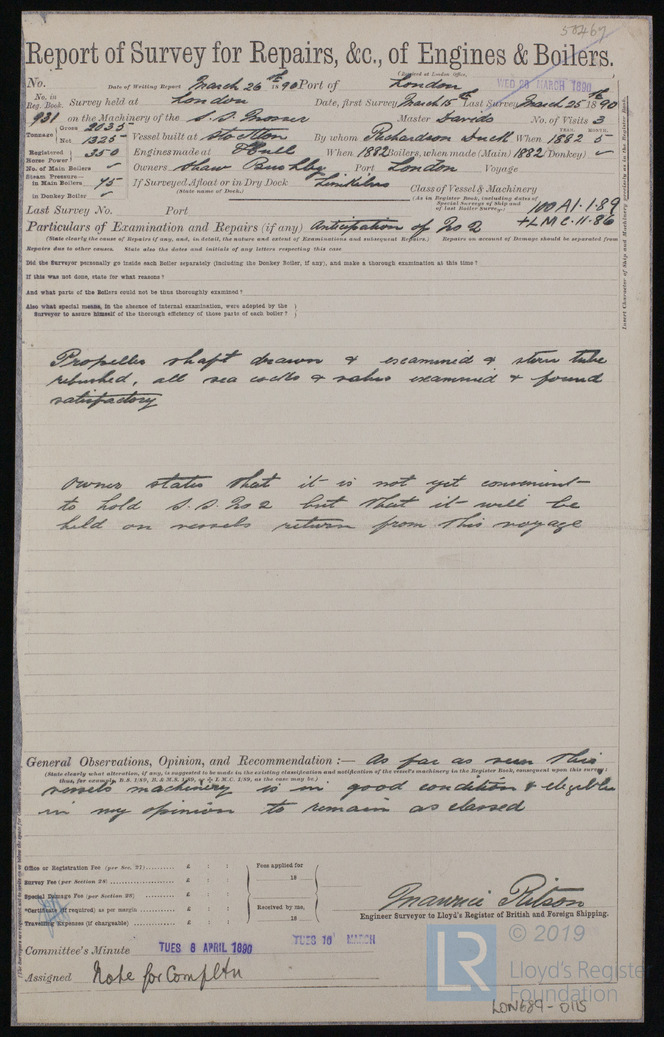 58467
Report of Survey for Repairs, &c., of Engines & Boilers.
(Received at London Office,
No. Date of Writing Report March 26th 1890 Port of London WED 26 MARCH 1890
No. in Reg. Book. Survey held at London Date, first Survey March 15th Last Survey March 25th 1890
931 on the Machinery of the S.S. Master Davids No. of Visits 3
Tonnage Gross 2035 Net 1325 Vessel built at Stockton By whom Richardson Duck When YEAR. 1882 MONTH. 5
Registered Horse Power 350 Engines made at Hull When 1882 Boilers, when made (Main) 1882 (Donkey) ✓
No. of Main Boilers Owners Shaw Port London Voyage
Steam Pressure— in Main Boilers 75 If Surveyed Afloat or in Dry Dock Limekilns Class of Vessel & Machinery
in Donkey Boiler (State name of Dock.) (As in Register Book, including dates of Special Surveys of Ship and of last Boiler Survey.) 100A1.1.89
Last Survey No. Port +LMC.11.86
Particulars of Examination and Repairs (if any) Anticipation of No 2
(State clearly the cause of Repairs if any, and, in detail, the nature and extent of Examinations and subsequent Repairs.) Repairs on account of Damage should be separated from
Repairs due to other causes. State also the dates and initials of any letters respecting this case
Did the Surveyor personally go inside each Boiler separately (including the Donkey Boiler, if any), and make a thorough examination at this time?
If this was not done, state for what reasons?
And what parts of the Boilers could not be thus thoroughly examined?
Also what special means, in the absence of internal examination, were adopted by the
Surveyor to assure himself of the thorough efficiency of those parts of each boiler?
Propeller shaft drawn & examined & stern tube
rebushed, all sea cocks & valves examined & found
satisfactory
Owner states that it is not yet convenient
to hold S.S. No 2 but that it will be
held on vessels return from this voyage
General Observations, Opinion, and Recommendation :— As far as seen this
(State clearly what alteration, if any, is suggested to be made in the existing classification and notification of the vessel's machinery in the Register Book, consequent upon this survey;
thus, for example, B.S. 1/89, B. & M.S. 1/89, or + L.M.C. 1/89, as the case may be.)
vessels machinery is in good condition & eligible
in my opinion to remain as classed
Office or Registration Fee (per Sec. 27) £ : : Fees applied for
Survey Fee (per Section 28) £ : : 18
Special Damage Fee (per Section 28) £ : :
*Certificate (if required) as per margin £ : : Received by me,
Travelling Expenses (if chargeable) £ : : 18
Maurice Ritson
Engineer Surveyor to Lloyd's Register of British and Foreign Shipping.
Committee's Minute TUES 8 APRIL 1890 TUES 18 MARCH
Assigned Note for Compltn
LR © 2019
Lloyd's Register
Foundation
LDN689-0115